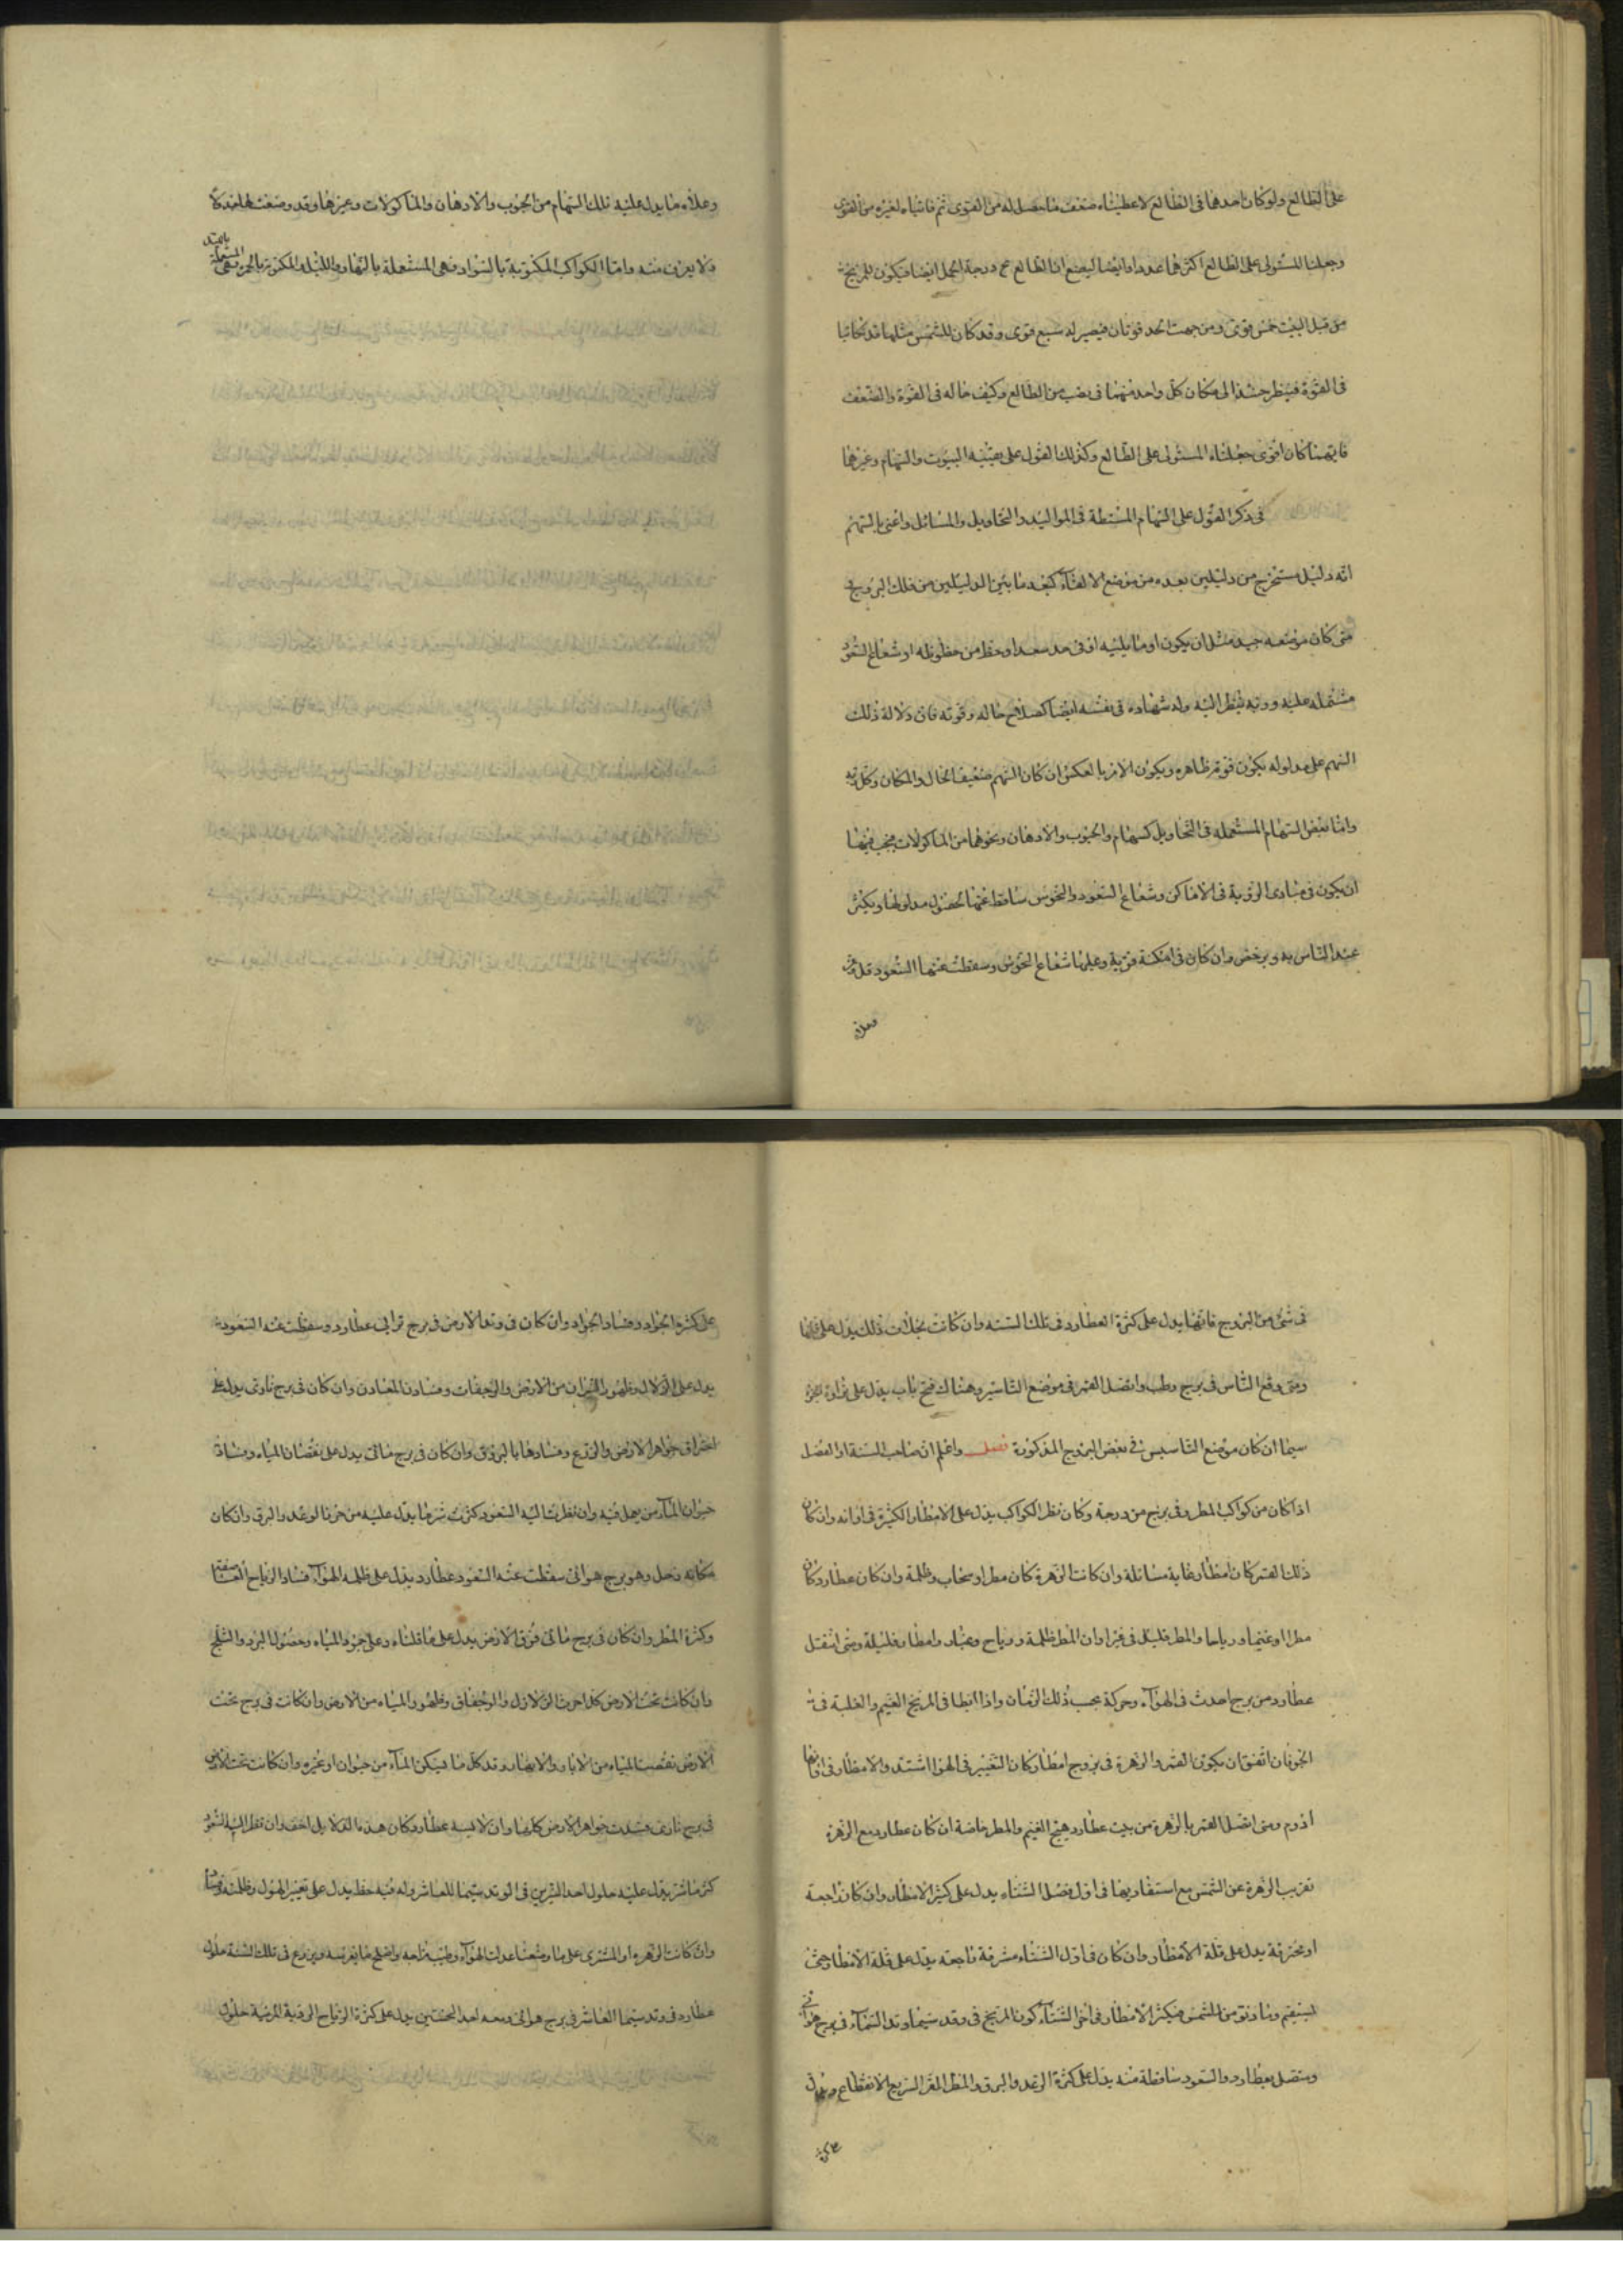 على الطالع ولو كان احدهما فى الطالع لاعطيناه ضعف ما يحصل له من القوى ثم ما تنباه لغيره من القوى
وجعلنا المستولى على الطالع اكثرهما عددا وايضا ليضع ان الطالع درجة الحمل ايضا فيكون للمريخ
من قبل البيت خمس قوى ومن جهت الحد قوتان فيصير له سبع قوى وقد كان للشمس مثلها قد تكافيا
فى القوة فينظر حينئذ الى مكان كل واحد منهما فى نصب من الطالع وكيف حاله فى القوة والضعف
فايهما كان اقوى جعلناه المستولى على الطالع وكذلك القول على بقيته البيوت والسهام وغيرها
فى ذكر القول على السهام المستنبطة فى المواليد والتحاويل والمسائل واعنى بالسهم
انه دليل مستخرج من دليلين بعده من موضع الالقاء كبعد ما بين الدليلين من فلك البروج
متى كان موضعه جيد مثل ان يكون او ما يليه او فى حد سعد او حظ من حظوظه او شعاع السعود
مشتمله عليه وربه ينظر اليه وله شهاده فى نفسه ايضا كصلاح حاله وقوته فان دلالة ذلك
السهم على مدلوله يكون قويه ظاهره ويكون الامر بالعكس ان كان السهم ضعيف الحال والمكان وكل ربه
واما بعض السهام المستعمله فى التحاويل كسهام والحبوب والادهان ونحوهما من الماكولات يجب فيها
ان يكون فى مبادى الرؤية فى الاماكن وشعاع السعود والنحوس ساقط عنها لحصول مدلولها ويكثر
عند الناس به ويرخص وان كان فى امكنة قوية وعليها شعاع النحوس وسقطت عنها السعود قل
وعلاه
وعلاه ما يدل عليه تلك السهام من الحبوب والادهان والماكولات وغيرها وقد وضعت لها جدولا
ولا يعرف منه واما الكواكب المكتوبة بالسواد فهى المستعملة بالنهار والليله المكتوبة بالحمره فهى المستعملة
فى شئ من البروج فانها يدل على كثرة العطارد فى تلك السنه وان كانت بخلاف ذلك يدل على قلتها
ومتى وقع الناس فى برج رطب واتصل القمر فى موضع التاسير وهناك فتح باب يدل على نداوه
سيما ان كان موضع التاسيس فى بعض البروج المذكورة فصل واعلم ان صاحب السنة او الفصل
اذا كان من كواكب المطر وفى برج من درجة وكان نظر الكواكب يدل على الامطار الكثيرة فى اوانه وان كان
ذلك القمر كان امطار غايه متسائلة وان كانت الزهرة كان مطر او سحاب وظلمة وان كان عطارد كان
مطرا او غيما ورياحا والمطر قليل فى فيرا وان المطر ظلمة ورياح وغبار وامطار قليلة ومتى انتقل
عطارد من برج احدث فى الهوآء وحركة بحسب ذلك الزمان واذا ابطا فى المريخ الغيم والغلبة فى
الجو فان اتفق ان يكون القمر والزهرة فى بروج امطار كان التغيير فى الهوا اشتد والامطار فى اوقاتها
ادوم ومتى اتصل القمر بالزهرة من بيت عطارد هيج الغيم والمطر خاصة ان كان عطارد مع الزهرة
تغرب الزهرة عن الشمس مع استقاربها فى اول فصل الشتاء يدل على كثير الامطار وان كان راجعة
او محترقة يدل على قلة الامطار وان كان فى اول الشتاء مشرقة راجعة يدل على قلة الامطار حتى
يستقيم ويدنو من الشمس فيكثر الامطار فى اخر الشتاء كون المريخ فى وتد سيما وتد السماء فى برج هوائى
ويتصل بعطارد والسعود ساقطة منه يدل على كثرة الرعد والبرق والمطر الغز السريع الانقطاع ويدل
على كثرة
على كثرة الجراد وفساد الجراد وان كان فى وتد الارض فى برج ترابى عطارد وسقطت عنه السعود
يدل على الزلال وظهور النيران من الارض والرجفات وفسادن المعادن وان كان فى برج نارى يدل على
احتراق جواهر الارض والزرع وفسادها بالبروق وان كان فى برج مائى يدل على نقصان المياه وفساد
حيوان المآء من يحمل فيه وان نظرت اليه السعود كثرت شر ما يدل عليه من حرنا الرعد والبرق وان كان
مكانه زحل وهو برج هوائى سقطت عنه السعود عطارد يدل على ظلمه الهوآء فساد الرياح
وكثرة المطر وان كان فى برج مائى فوق الارض يدل على ما قلناه وعلى جمود المياه وحصول البرد والثلج
وان كانت تحت الارض كلا حرث الزلازل والرجفات وظهور المياه من الارض وان كانت فى برج تحت
الارض نقصت المياه من الابار والانهار وقد كل ما فيسكن المآء من حيوان او غيره وان كانت تحت الارض
فى برج نارى فسدت جواهر الارض كلها وان لابسه عطارد كان هذه الدلايل اخف وان نظر اليه السعود
كثر ما شر يدل عليه حلول احد النيرين فى الوتد سيما للعاشر وله فيه حظ يدل على تغيير الهول وظلمته
وان كانت الزهره او المشترى على ما وصفنا عدلت الهوآء وطيبه مزاجه واصلح ما يغرسه ويزرع فى تلك السنة حلول
عطارد فى وتد سيما العاشر فى برج هوائى ومعه احد النحسين يدل على كثرة الرياح الردية المرضية حلول